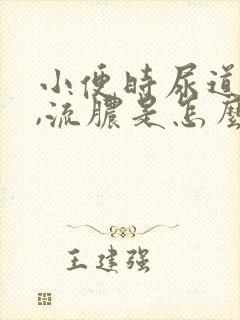 小便时尿道
,流膿是怎麼
王建强